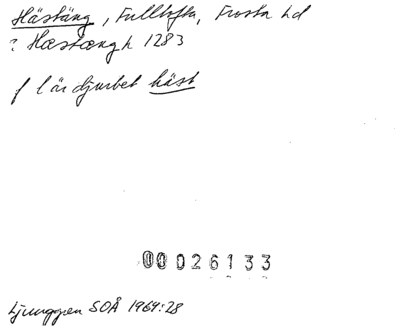 Hästäng, Fulltofta, Frosta hd
? Hæstængh 1283
f l är djurbet häst
00026133
Ljunggren SOÅ 1969:28